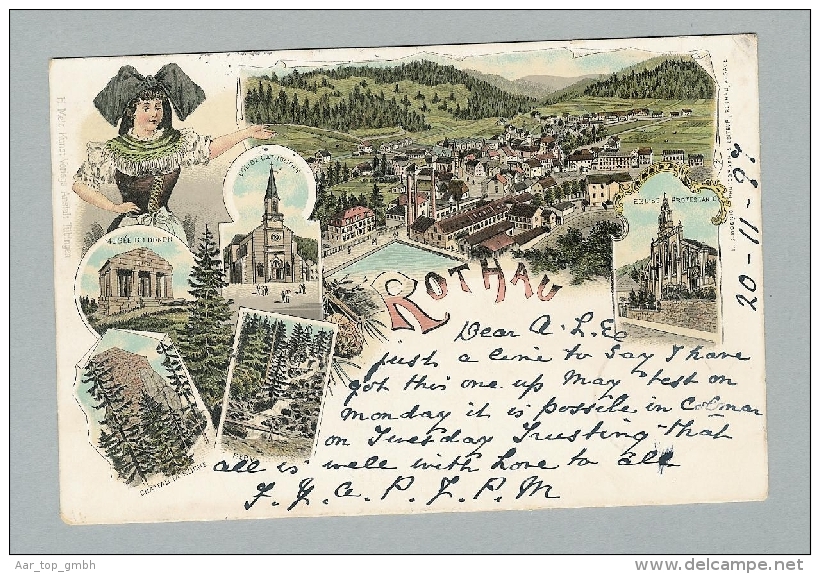 EGLISE CATHOLIQUE
MUSÉE DU DONON
EGLISE PROTESTANTE
ROTHAU
20-11-97
Dear A. L. E
just a line to say I have
got this one up May test on
monday it is possile in Colmar
on Tuesday Trusting that
all is well with love to all
J. Y. A. P. J. P. M
Aar_top_gmbh
delcampe.net